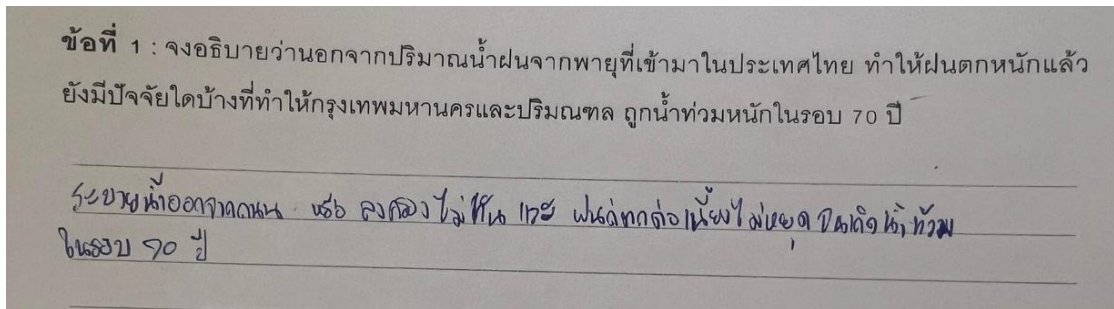 ข้อที่ 1 : จงอธิบายว่านอกจากปริมาณน้ำฝนจากพายุที่เข้ามาในประเทศไทย ทำให้ฝนตกหนักแล้ว
ยังมีปัจจัยใดบ้างที่ทำให้กรุงเทพมหานครและปริมณฑล ถูกน้ำท่วมหนักในรอบ 70 ปี
ระบายน้ำออกจากถนน หรือ ลงคลองไม่ทัน และ ฝนก็ตกต่อเนื่องไม่หยุด จนเกิดน้ำท้วม
ในรอบ 70 ปี